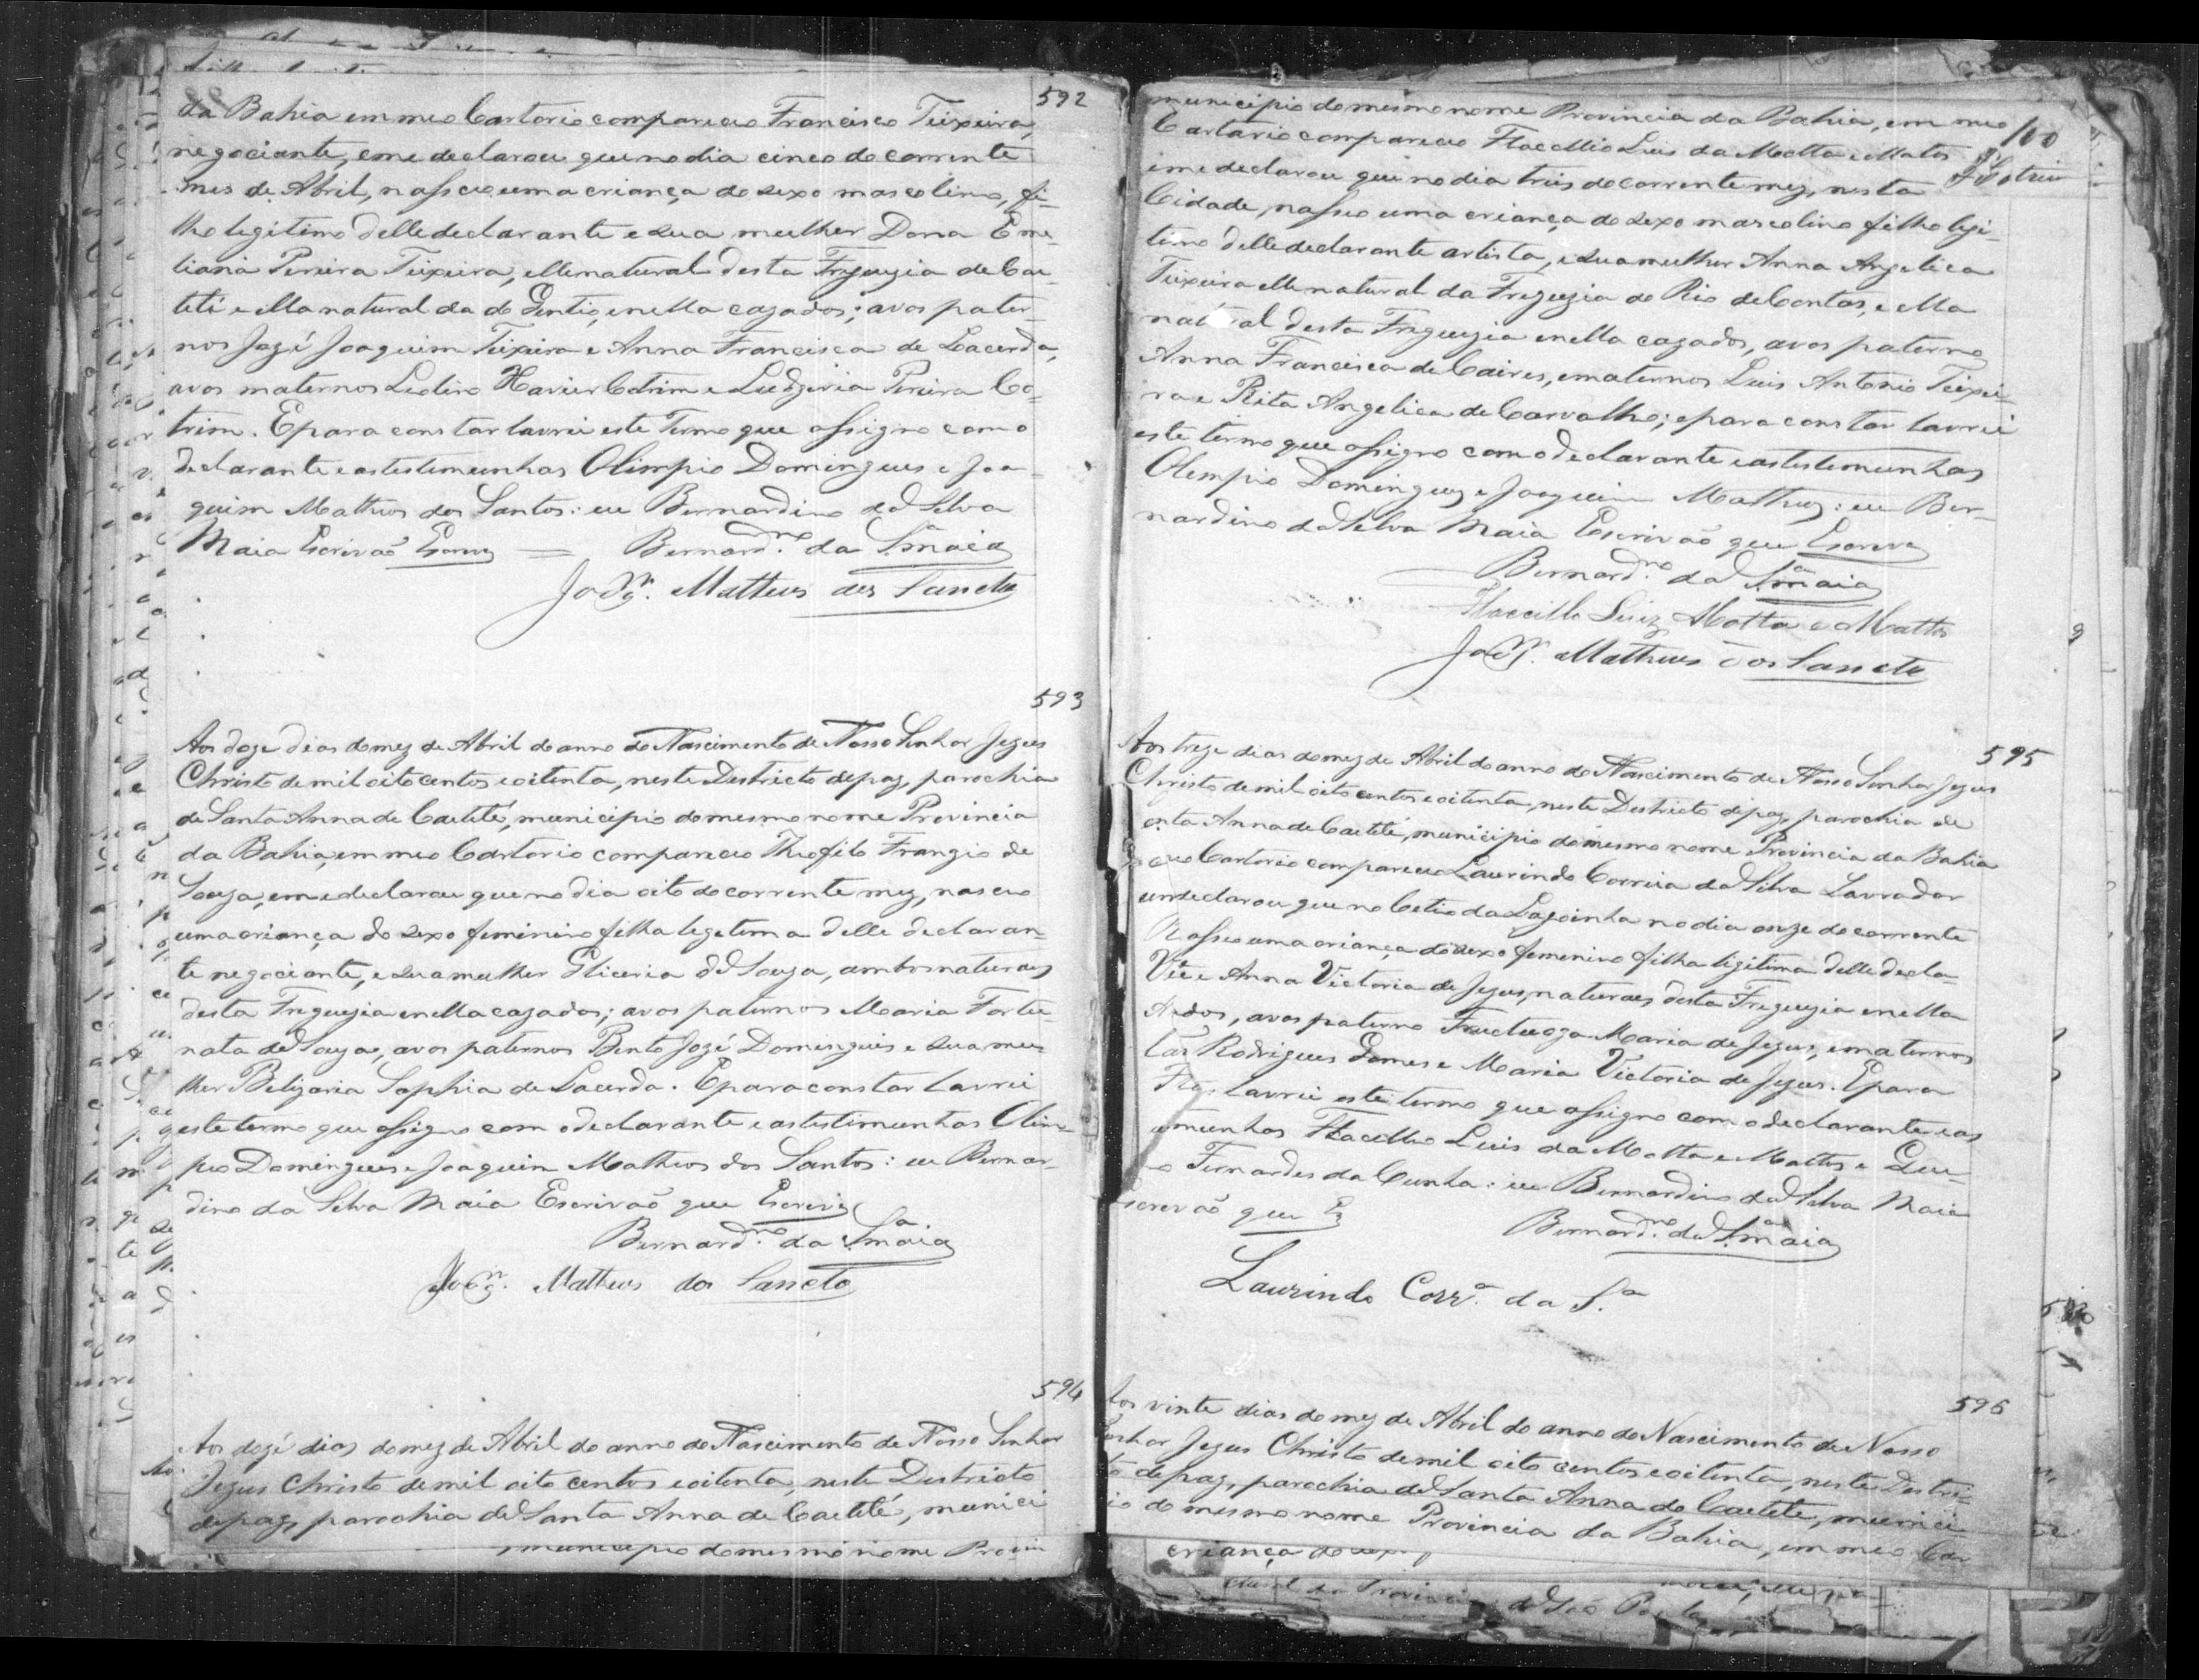 592
da Bahia em meo Cartorio compareceo Francisco Teixeira,
negociante, e me declarou que no dia cinco do corrente
mes de Abril, nasceo uma criança do sexo mascolino, fi-
lho legitimo delle declarante e sua mulher Dona Eme-
liana Pereira Teixeira, elle natural desta Freguezia de Cae-
teté e ella natural da do Gentio, e nella cazados; avos pater-
nos Jozé Joaquim Teixeira e Anna Francisca de Lacerda,
avos maternos Leolino Xavier Cotrim e Ludgeria Pereira Co-
trim. E para constar lavrei este Termo que assigno com o
declarante e as testemunhas Olimpio Domingues e Joa-
quim Matheos dos Santos: eu Bernardino da Silva
Maia Escrivão Escrevy = Bernard.no da S.a Maia
Joaq.m Matheus dos Sanctos
593
Aos doze dias do mez de Abril do anno do Nascimento de Nosso Senhor Jezus
Christo de mil oito centos e oitenta, neste Districto de paz, parochia
de Santa Anna de Caeteté, municipio do mesmo nome Provincia
da Bahia, em meo Cartorio compareceo Theofilo Frangio de
Souza, e me declarou que no dia oito do corrente mez, nasceo
uma criança do sexo feminino filha legetima delle declaran-
te negociante, e sua mulher Gliceria de Souza, ambos naturaes
desta Freguezia e nella cazados; avos paternos Maria Fortu-
nata de Souza, avos paternos Bento Jozé Domingues e sua mu-
lher Belizaria Sophia de Lacerda. E para constar lavrei
este termo que assigno com o declarante e as testimunhas Olim-
pio Domingues e Joaquim Matheos dos Santos: eu Bernar-
dino da Silva Maia Escrivão que Escrevi
Bernard.no da S.a Maia
Joaq.m Matheus dos Sanctos
594
Aos dozé dias do mez de Abril do anno do Nascimento de Nosso Senhor
Jezus Christo de mil oito centos e oitenta, neste Districto
de paz, parochia de Santa Anna de Caeteté, munici
municipio do mesmo nome Provin
100
municipio do mesmo nome Provincia da Bahia, em meo
Cartorio compareceo Flacellio Luis da Motta e Matos
e me declarou que no dia treis do corrente mez, nesta
Cidade, nasceo uma criança do sexo mascolino filho legi-
timo delle declarante artista, e sua mulher Anna Angelica
Teixeira elle natural da Freguezia do Rio de Contas, e ella
natural desta Freguezia e nella cazados, avos paterno
Anna Francisca de Caires, e maternos Luis Antonio Teixei-
ra e Rita Angelica de Carvalho; e para constar lavrei
este termo que assigno com o declarante e as testemunhas
Olempio Domingues e Joaquim Matheus: eu Ber-
nardino da Silva Maia Escrivão que Escrevy
Bernard.no da S.a Maia
Flaccillo Luiz Motta e Mattos
Joaq.m Matheus dos Sanctos
595
Aos treze dias do mez de Abril do anno do Nascimento de Nosso Senhor Jezus
Christo de mil oito centos e oitenta, neste Districto de paz, parochia de
anta Anna de Caeteté, municipio do mesmo nome Provincia da Bahia
eo Cartorio compareceo Laurindo Correia da Silva Lavrador
e me declarou que no Citio da Lagoinha no dia onze do corrente
Nasceo uma criança do sexo femenino filha ligitima delle decla-
e Anna Victoria de Jezus, naturaes desta Freguezia e nella
ados, avos paterno Fructuoza Maria de Jezus, e maternos
Rodrigues Gomes e Maria Victoria de Jezus. E para
lavrei este termo que assigno com o declarante e as
emunhas Flacellio Luis da Motta e Mattos e
Fernandes da Cunha: eu Bernardino da Silva Maia
screvão que E
Bernard.no da S.a Maia
Laurindo Corr.a da S.a
596
Aos vinte dias do mez de Abril do anno do Nascimento de Nosso
enhor Jezus Christo de mil oito centos e oitenta, neste Destri-
to de paz, parochia de Santa Anna do Caetete, munici
io do mesmo nome Provincia da Bahia, em meo Car
criança do sexo
da Provincia de São Paulo